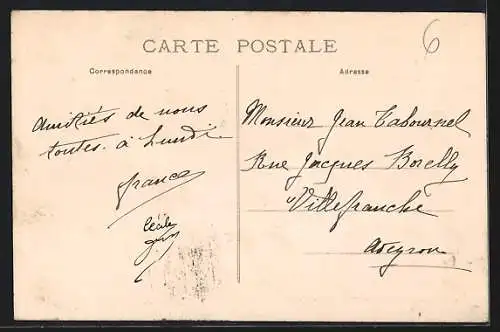 6
CARTE POSTALE
Correspondance
Adresse
Amitiés de nous
toutes. à Lundi
france
Cécile
Monsieur Jean Tabournel
Rue Jacques Borelly
Villefranche
Aveyron